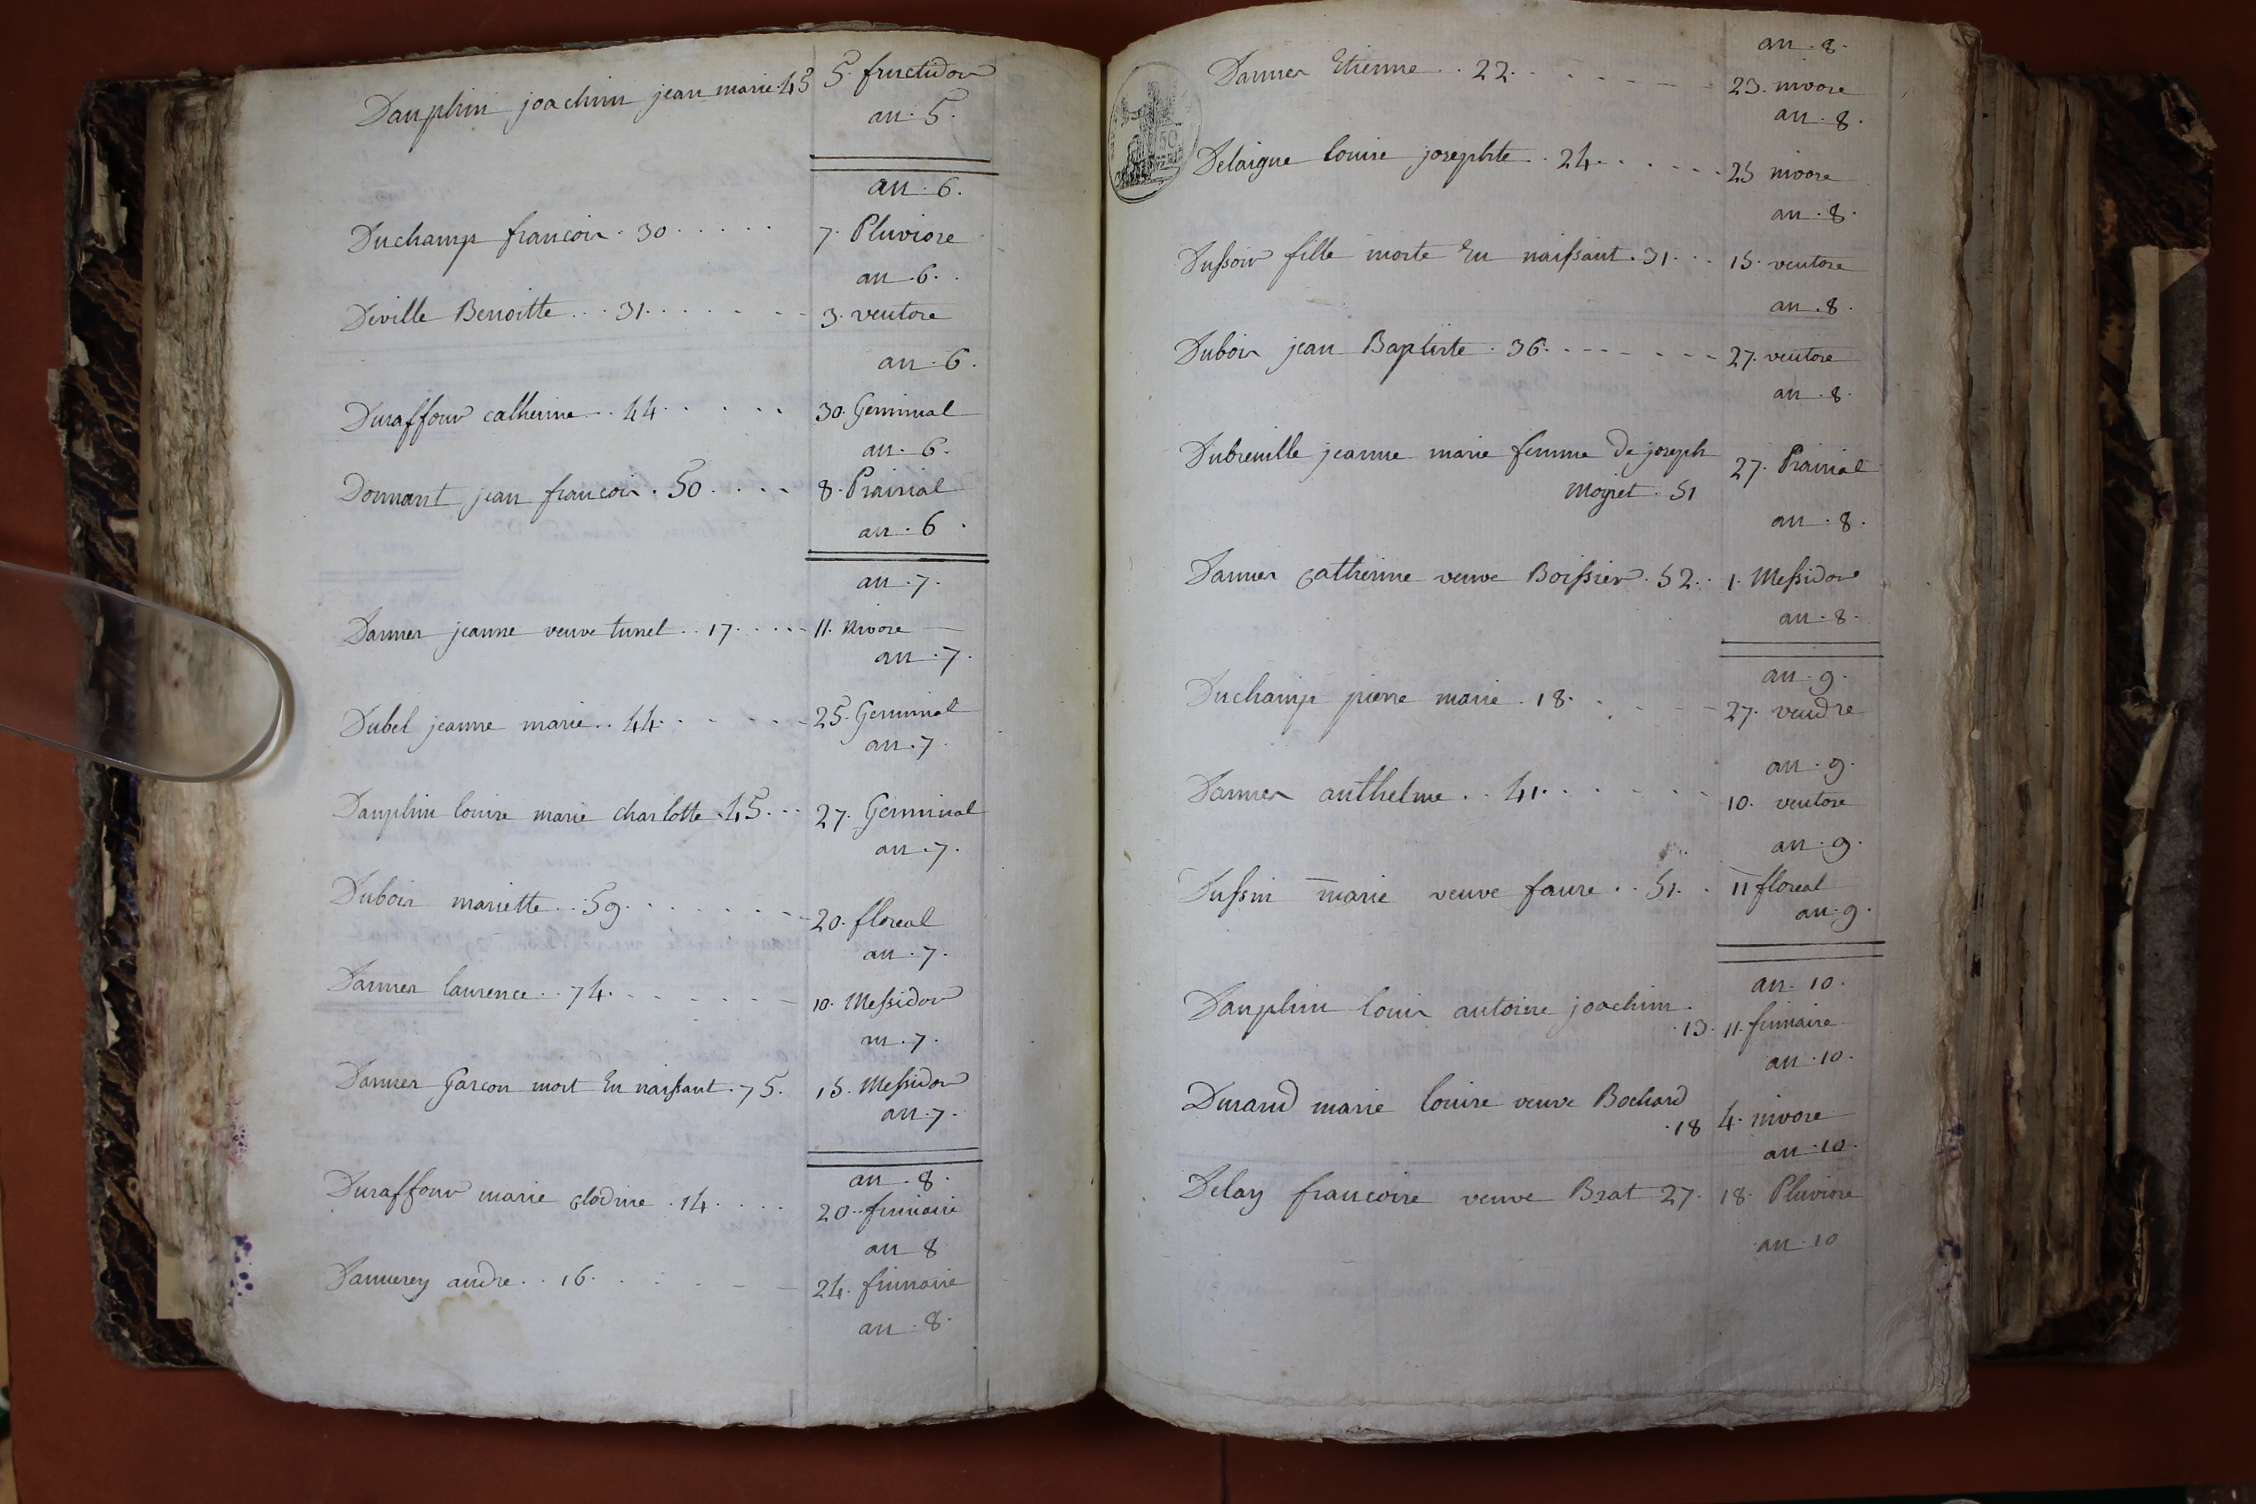 Dauphin joachim jean marie. 43 5. fructidor
an. 5.
an. 6.
Duchamp francois. 30 . . . . . 7. Pluviose
an. 6.
Deville Benoitte . . . 31 . . . . . . . 3. ventose
an. 6.
Duraffour catherine . . 44 . . . . . 30. Germinal
an. 6.
Donnant jean francois. 50 . . . . 8. Prairial
an. 6.
an. 7.
Danner jeanne veuve tunel . . 17 . . . . . 11. Nivose
an. 7.
Dubel jeanne marie . . 44 . . . . . . 25. Germinal
an. 7.
Dauphin louise marie charlotte. 45 . . . 27. Germinal
an. 7.
Dubois mariette . . 59 . . . . . . . . 20. floreal
an. 7.
Danner laurence . . 74 . . . . . . . 10. Messidor
an. 7.
Danner Garcon mort En naissant. 75. 15. Messidor
an. 7.
an. 8.
Duraffour marie Clodine. 14 . . . . 20. frimaire
an 8
Dannerey andre . . 16 . . . . . . 24. frimaire
an. 8.
an. 8.
Danner Etienne . . 22 . . . . . . . 23. nivose
an. 8.
50
Delaigne louise josephte . . 24 . . . . . . 25 nivose
an. 8.
Dussoir fille morte En naissant. 31 . . . 15. ventose
an. 8.
Dubois jean Baptiste. 36 . . . . . . . . 27. ventose
an. 8.
Dubreuille jeanne marie femme De joseph 27. Prairial
Moyret. 51
an. 8.
Danner Catherine veuve Boissier. 52 . . 1. Messidor
an. 8.
an. 9.
Duchamp pierre marie. 18 . . . . . . 27. vendre
an. 9.
Danner anthelme . . 41 . . . . . . 10. ventose
an. 9.
Dussin marie veuve faure . . 51 . . 11 floreal
an. 9.
an. 10.
Dauphin louis antoine joachim.
. 13. 11. frimaire
an. 10.
Durand marie louise veuve Bochard
. 18 4. nivose
an. 10.
Delay francoise veuve Brat 27. 18. Pluviose
an. 10